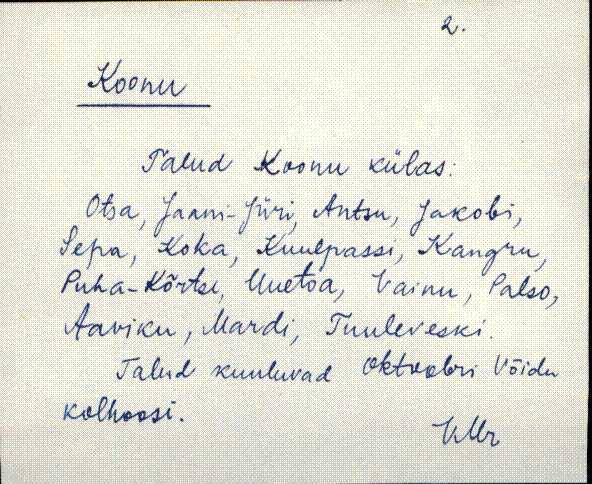 2.
Koonu
Talud Koonu külas:
Otsa, Jaani-Jüri, Antsu, Jakobi,
Sepa, Koka, Kuulpassi, Kangru,
Puha-Kõrtsi, Uuetoa, Vainu, Palso,
Aaviku, Mardi, Tuuleveski.
Talud kuuluvad Oktoobri Võidu
kolhoosi.